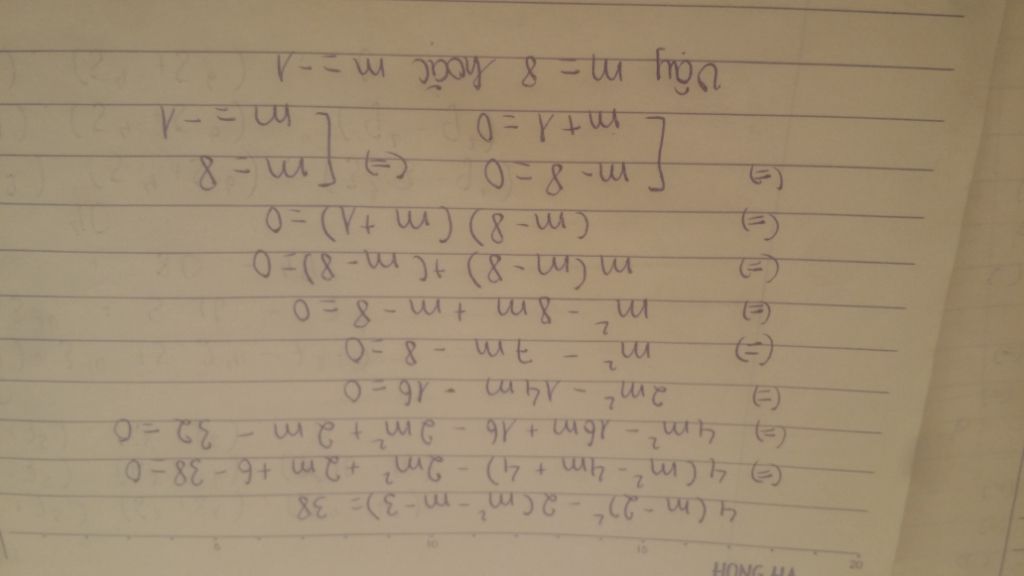 HONG HA
5 10 15 20
4(m-2)² - 2(m² - m - 3) = 38
(=) 4(m² - 4m + 4) - 2m² + 2m + 6 - 38 = 0
(=) 4m² - 16m + 16 - 2m² + 2m - 32 = 0
(=) 2m² - 14m - 16 = 0
(=) m² - 7m - 8 = 0
(=) m² - 8m + m - 8 = 0
(=) m(m - 8) + (m - 8) = 0
(=) (m - 8) (m + 1) = 0
(=) [ m - 8 = 0 (=) [ m = 8
m + 1 = 0 m = -1
Vậy m = 8 hoặc m = -1